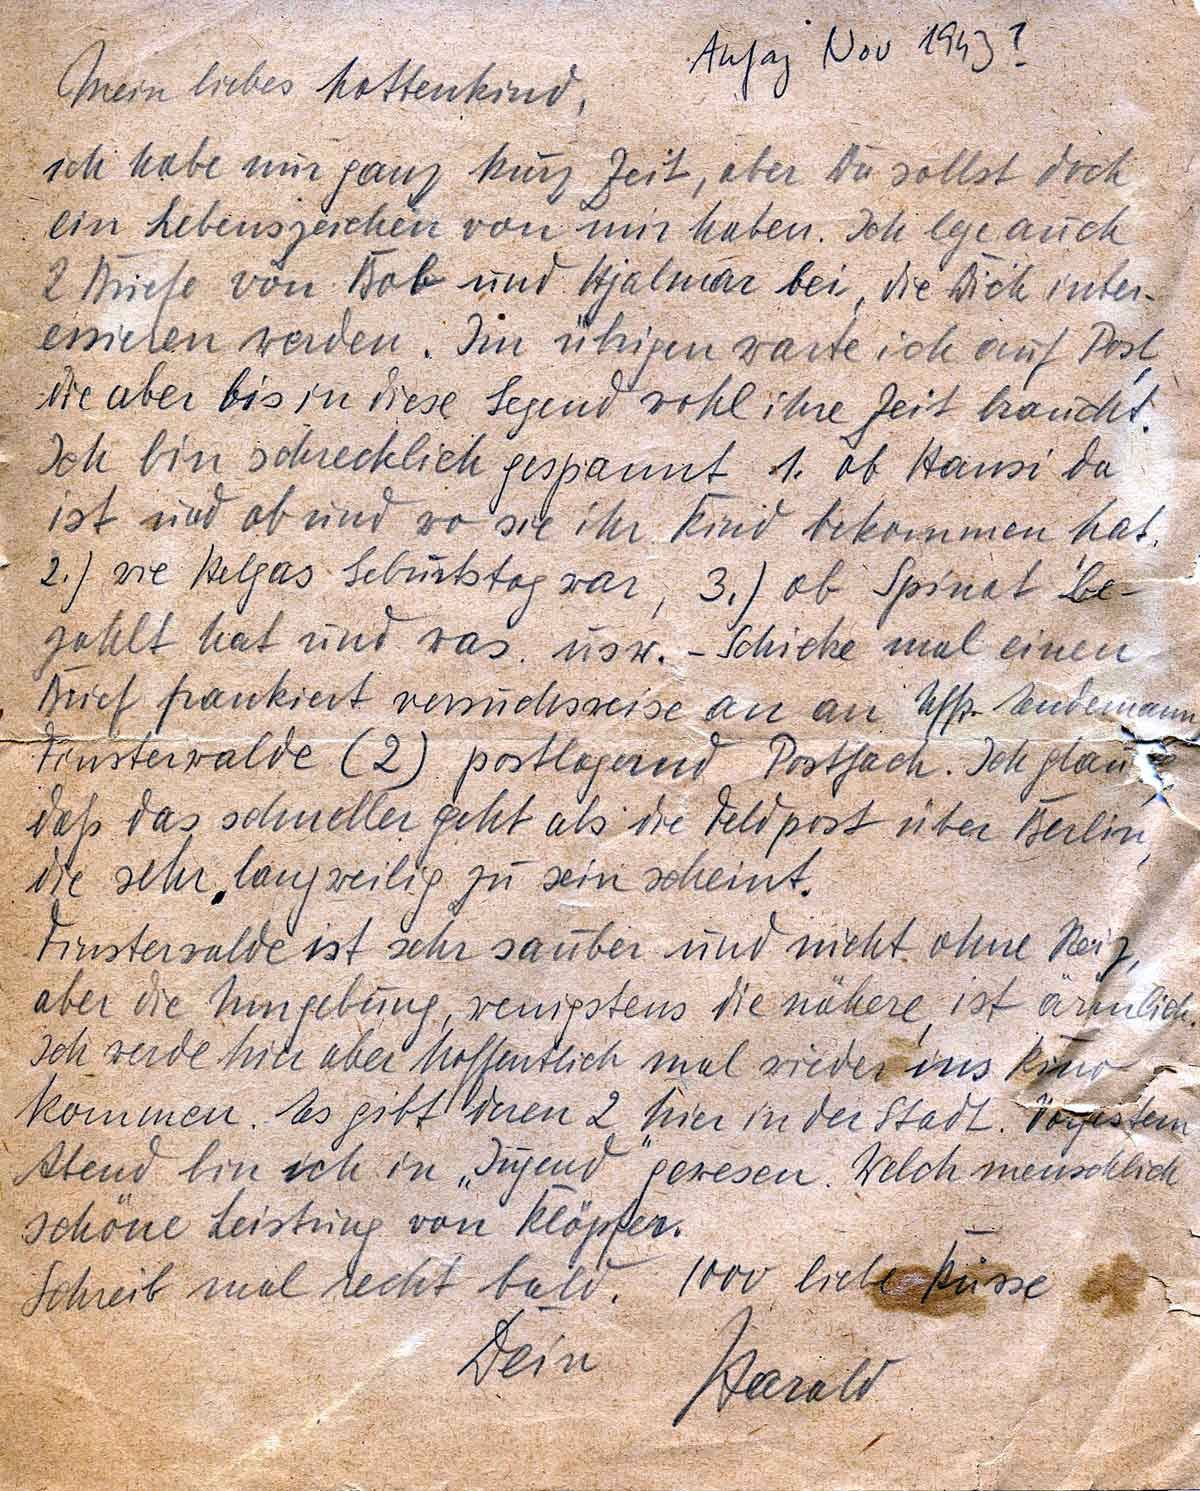 Anfag Nov 1943?
Mein liebes Mottenkind,
ich habe nur ganz kurz Zeit, aber Du sollst doch
ein Lebenszeichen von mir haben. Ich lege auch
2 Briefe von Bob und Hjalmar bei, die Dich inter-
essieren werden. Im übrigen warte ich auf Post,
die aber bis in diese Gegend wohl ihre Zeit braucht.
Ich bin schrecklich gespannt 1. ob Hansi da
ist und ob und wo sie ihr Kind bekommen hat.
2.) wie Helgas Geburtstag war, 3.) ob Spinat be-
zahlt hat und was. usw. - Schicke mal einen
Brief frankiert versuchsweise an an Uffz. Lindemann
Finsterwalde (2) postlagernd Postfach. Ich glaube
daß das schneller geht als die Feldpost über Berlin,
die sehr langweilig zu sein scheint.
Finsterwalde ist sehr sauber und nicht ohne Reiz,
aber die Umgebung, wenigstens die nähere, ist ärmlich.
Ich werde hier aber hoffentlich mal wieder ins Kino
kommen. Es gibt deren 2 hier in der Stadt. Vorgestern
Abend bin ich in „Jugend" gewesen. Welch menschlich
schöne Leistung von Klöpfer.
Schreib mal recht bald. 1000 liebe Küsse
Dein Harald